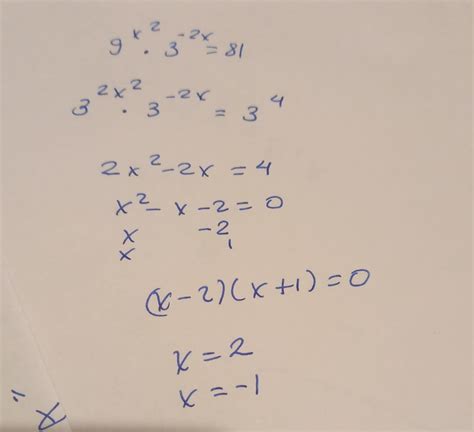 9^x^2 · 3^-2x = 81
3^2x^2 · 3^-2x = 3^4
2x^2 - 2x = 4
x^2 - x - 2 = 0
x -2
x 1
(x-2)(x+1)=0
x = 2
x = -1